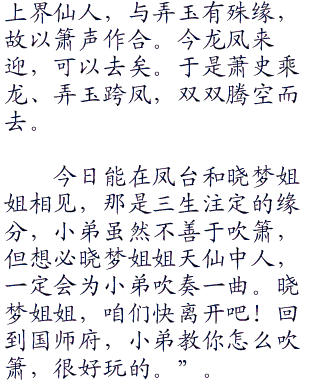 上界仙人，与弄玉有殊缘，
故以箫声作合。今龙凤来
迎，可以去矣。于是萧史乘
龙、弄玉跨凤，双双腾空而
去。
今日能在凤台和晓梦姐
姐相见，那是三生注定的缘
分，小弟虽然不善于吹箫，
但想必晓梦姐姐天仙中人，
一定会为小弟吹奏一曲。晓
梦姐姐，咱们快离开吧！回
到国师府，小弟教你怎么吹
箫，很好玩的。”。